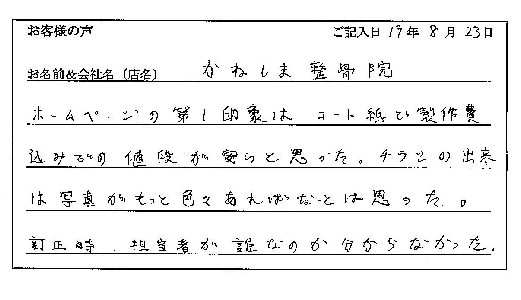 お客様の声 ご記入日 19年 8月 23日
お名前or会社名(店名) かねしま整骨院
ホームページの第1印象は コート紙で製作費
込みでの値段が安いと思った。チラシの出来
は写真がもっと色々あればなーとは思った。
訂正時、担当者が誰なのか分からなかった。